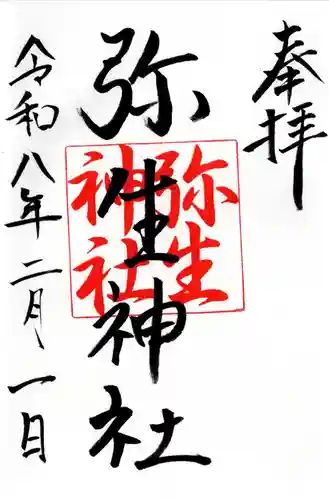 奉拝
弥生神社
弥生
神社
令和八年二月一日